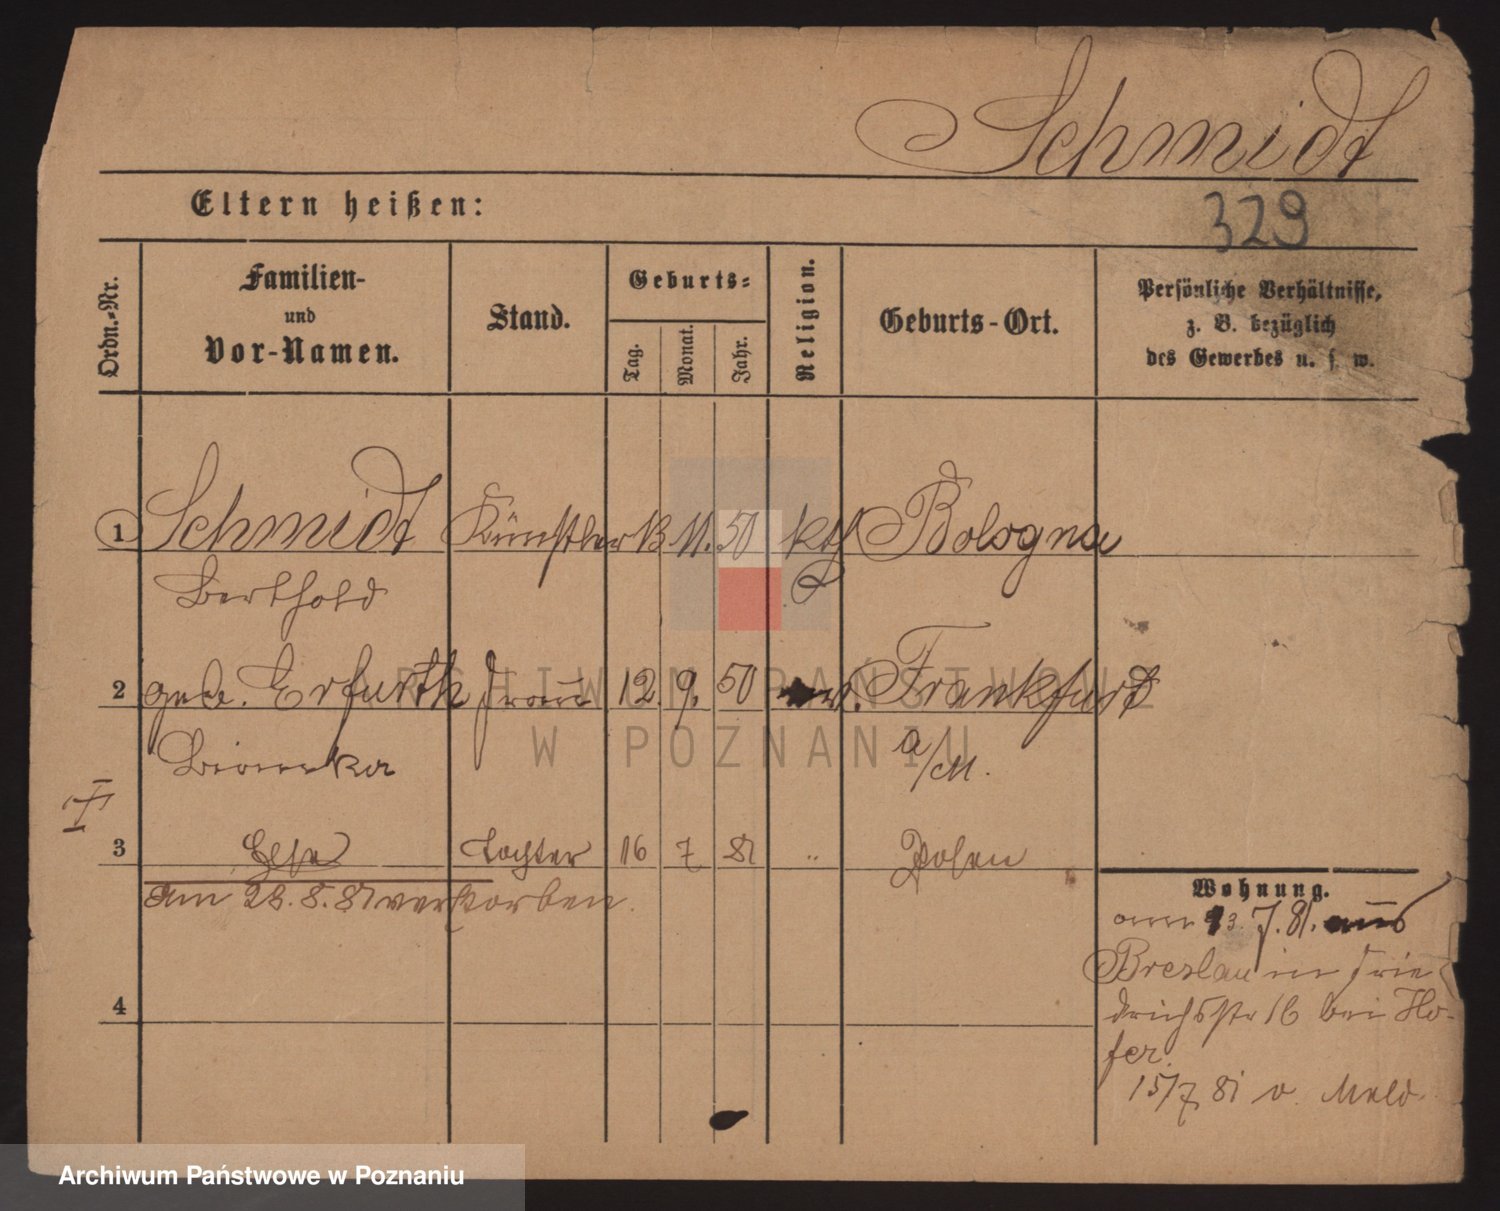 Schmidt
Eltern heißen:
329
Ordn.-Nr.
Familien-
und
Vor-Namen.
Stand.
Geburts-
Tag.
Monat.
Jahr.
Religion.
Geburts-Ort.
Persönliche Verhältnisse,
z. B. bezüglich
des Gewerbes u. s. w.
1 Schmidt Künstler 13 11. 50 kth Bologna
Berthold
2 geb. Erfurth Frau 12. 9. 50 Frankfurt
Bianka a/M.
3 Else Tochter 16 7 81 " Posen
am 28. 8. 81 verstorben.
Wohnung.
am 13. 7. 81. aus
Breslau in Frie
drichsstr 16 bei Ho-
fer.
15/7 81 v. Meld.
4
ARCHIWUM PAŃSTWOWE
W POZNANIU
Archiwum Państwowe w Poznaniu